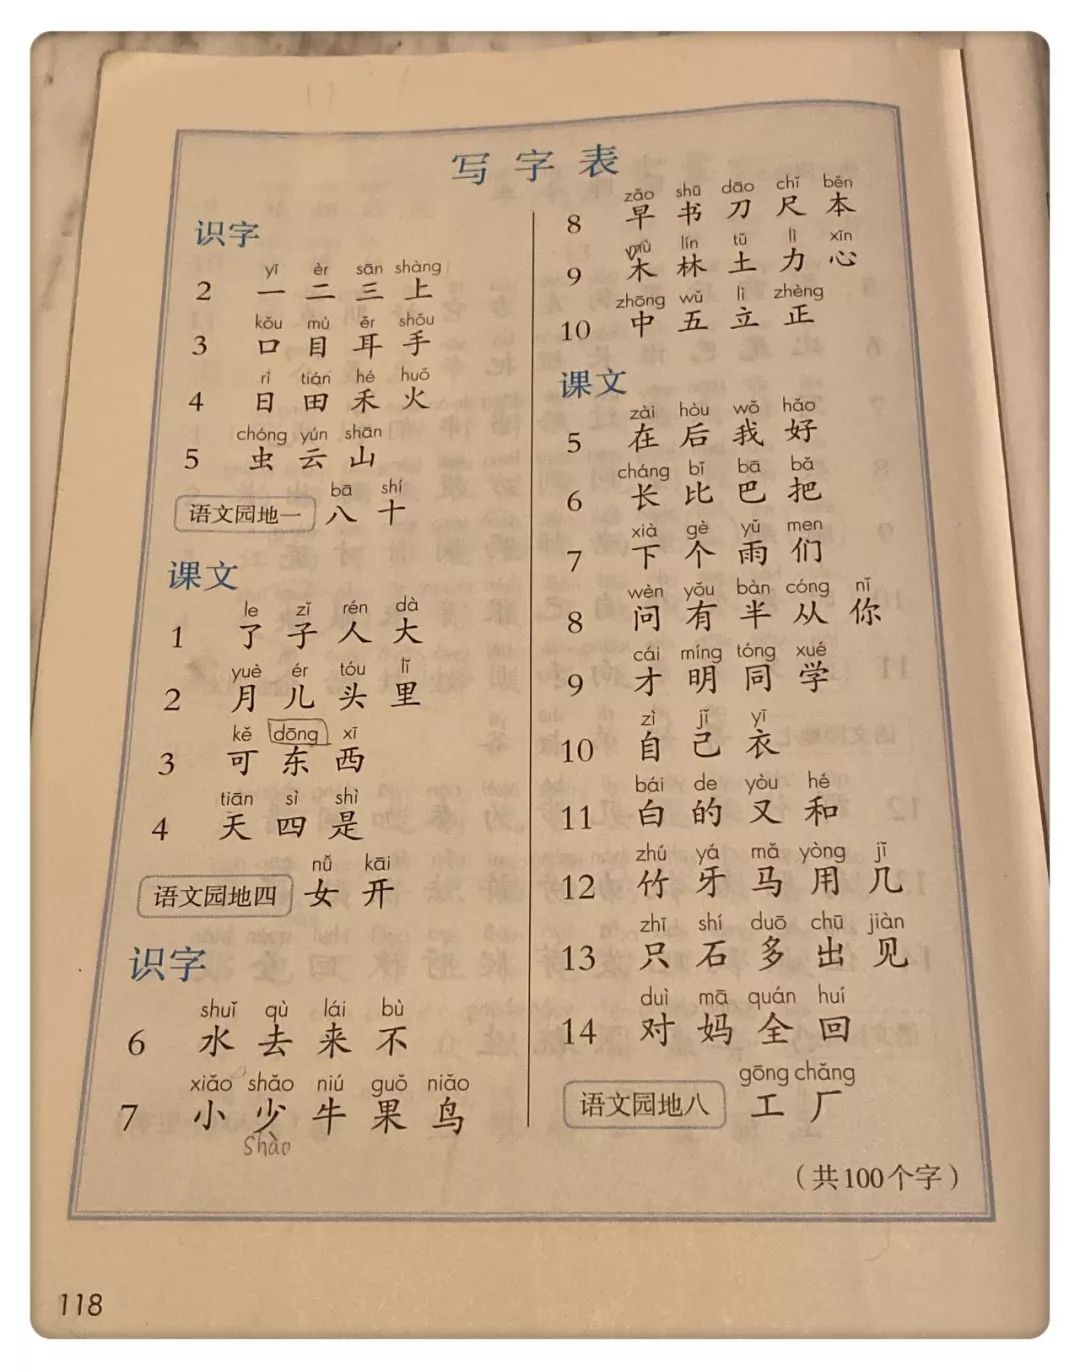 写字表
识字
yī èr sān shàng
2 一 二 三 上
kǒu mù ěr shǒu
3 口 目 耳 手
rì tián hé huǒ
4 日 田 禾 火
chóng yún shān
5 虫 云 山
bā shí
语文园地一 八 十
课文
le zǐ rén dà
1 了 子 人 大
yuè ér tóu lǐ
2 月 儿 头 里
kě dōng xī
3 可 东 西
tiān sì shì
4 天 四 是
nǚ kāi
语文园地四 女 开
识字
shuǐ qù lái bù
6 水 去 来 不
xiǎo shǎo niú guǒ niǎo
7 小 少 牛 果 鸟
shào
zǎo shū dāo chǐ běn
8 早 书 刀 尺 本
mù lín tǔ lì xīn
9 木 林 土 力 心
zhōng wǔ lì zhèng
10 中 五 立 正
课文
zài hòu wǒ hǎo
5 在 后 我 好
cháng bǐ bā bǎ
6 长 比 巴 把
xià gè yǔ men
7 下 个 雨 们
wèn yǒu bàn cóng nǐ
8 问 有 半 从 你
cái míng tóng xué
9 才 明 同 学
zì jǐ yī
10 自 己 衣
bái de yòu hé
11 白 的 又 和
zhú yá mǎ yòng jǐ
12 竹 牙 马 用 几
zhī shí duō chū jiàn
13 只 石 多 出 见
duì mā quán huí
14 对 妈 全 回
gōng chǎng
语文园地八 工 厂
（共100个字）
118